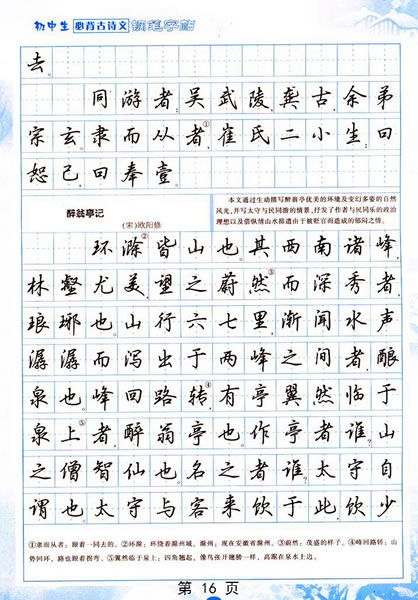 初中生 必背古诗文 钢笔字帖
去。
同游者：吴武陵，龚古，余弟
宗玄。隶而从者①，崔氏二小生：曰
恕己，曰奉壹。
醉翁亭记
(宋)欧阳修
本文通过生动描写醉翁亭优美的环境及变幻多姿的自然
风光，并写太守与民同游的情景，抒发了作者与民同乐的政治
理想以及借纵情山水排遣由于被贬官而造成的郁闷之情。
环滁②皆山也。其西南诸峰，
林壑尤美，望之蔚然③而深秀者，
琅琊也。山行六七里，渐闻水声
潺潺而泻出于两峰之间者，酿
泉也。峰回路转④，有亭翼然临于
泉上⑤者，醉翁亭也。作亭者谁？山
之僧智仙也。名之者谁？太守自
谓也。太守与客来饮于此，饮少
①隶而从者：跟着一同去的。②环滁：环绕着滁州城。滁州：现在安徽省滁州。③蔚然：茂盛的样子。④峰回路转：山
势回环，路也跟着拐弯。⑤翼然临于泉上：四角翘起，像鸟张开翅膀一样，高踞在泉水上边。
第 16 页